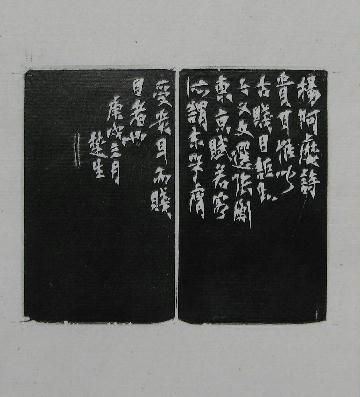 楊阿麼詩
貴耳唯
古賤目出
文選張衡
東京賦若客
所謂末學膚
受貴耳而賤
目者也
庚戌月
楚生